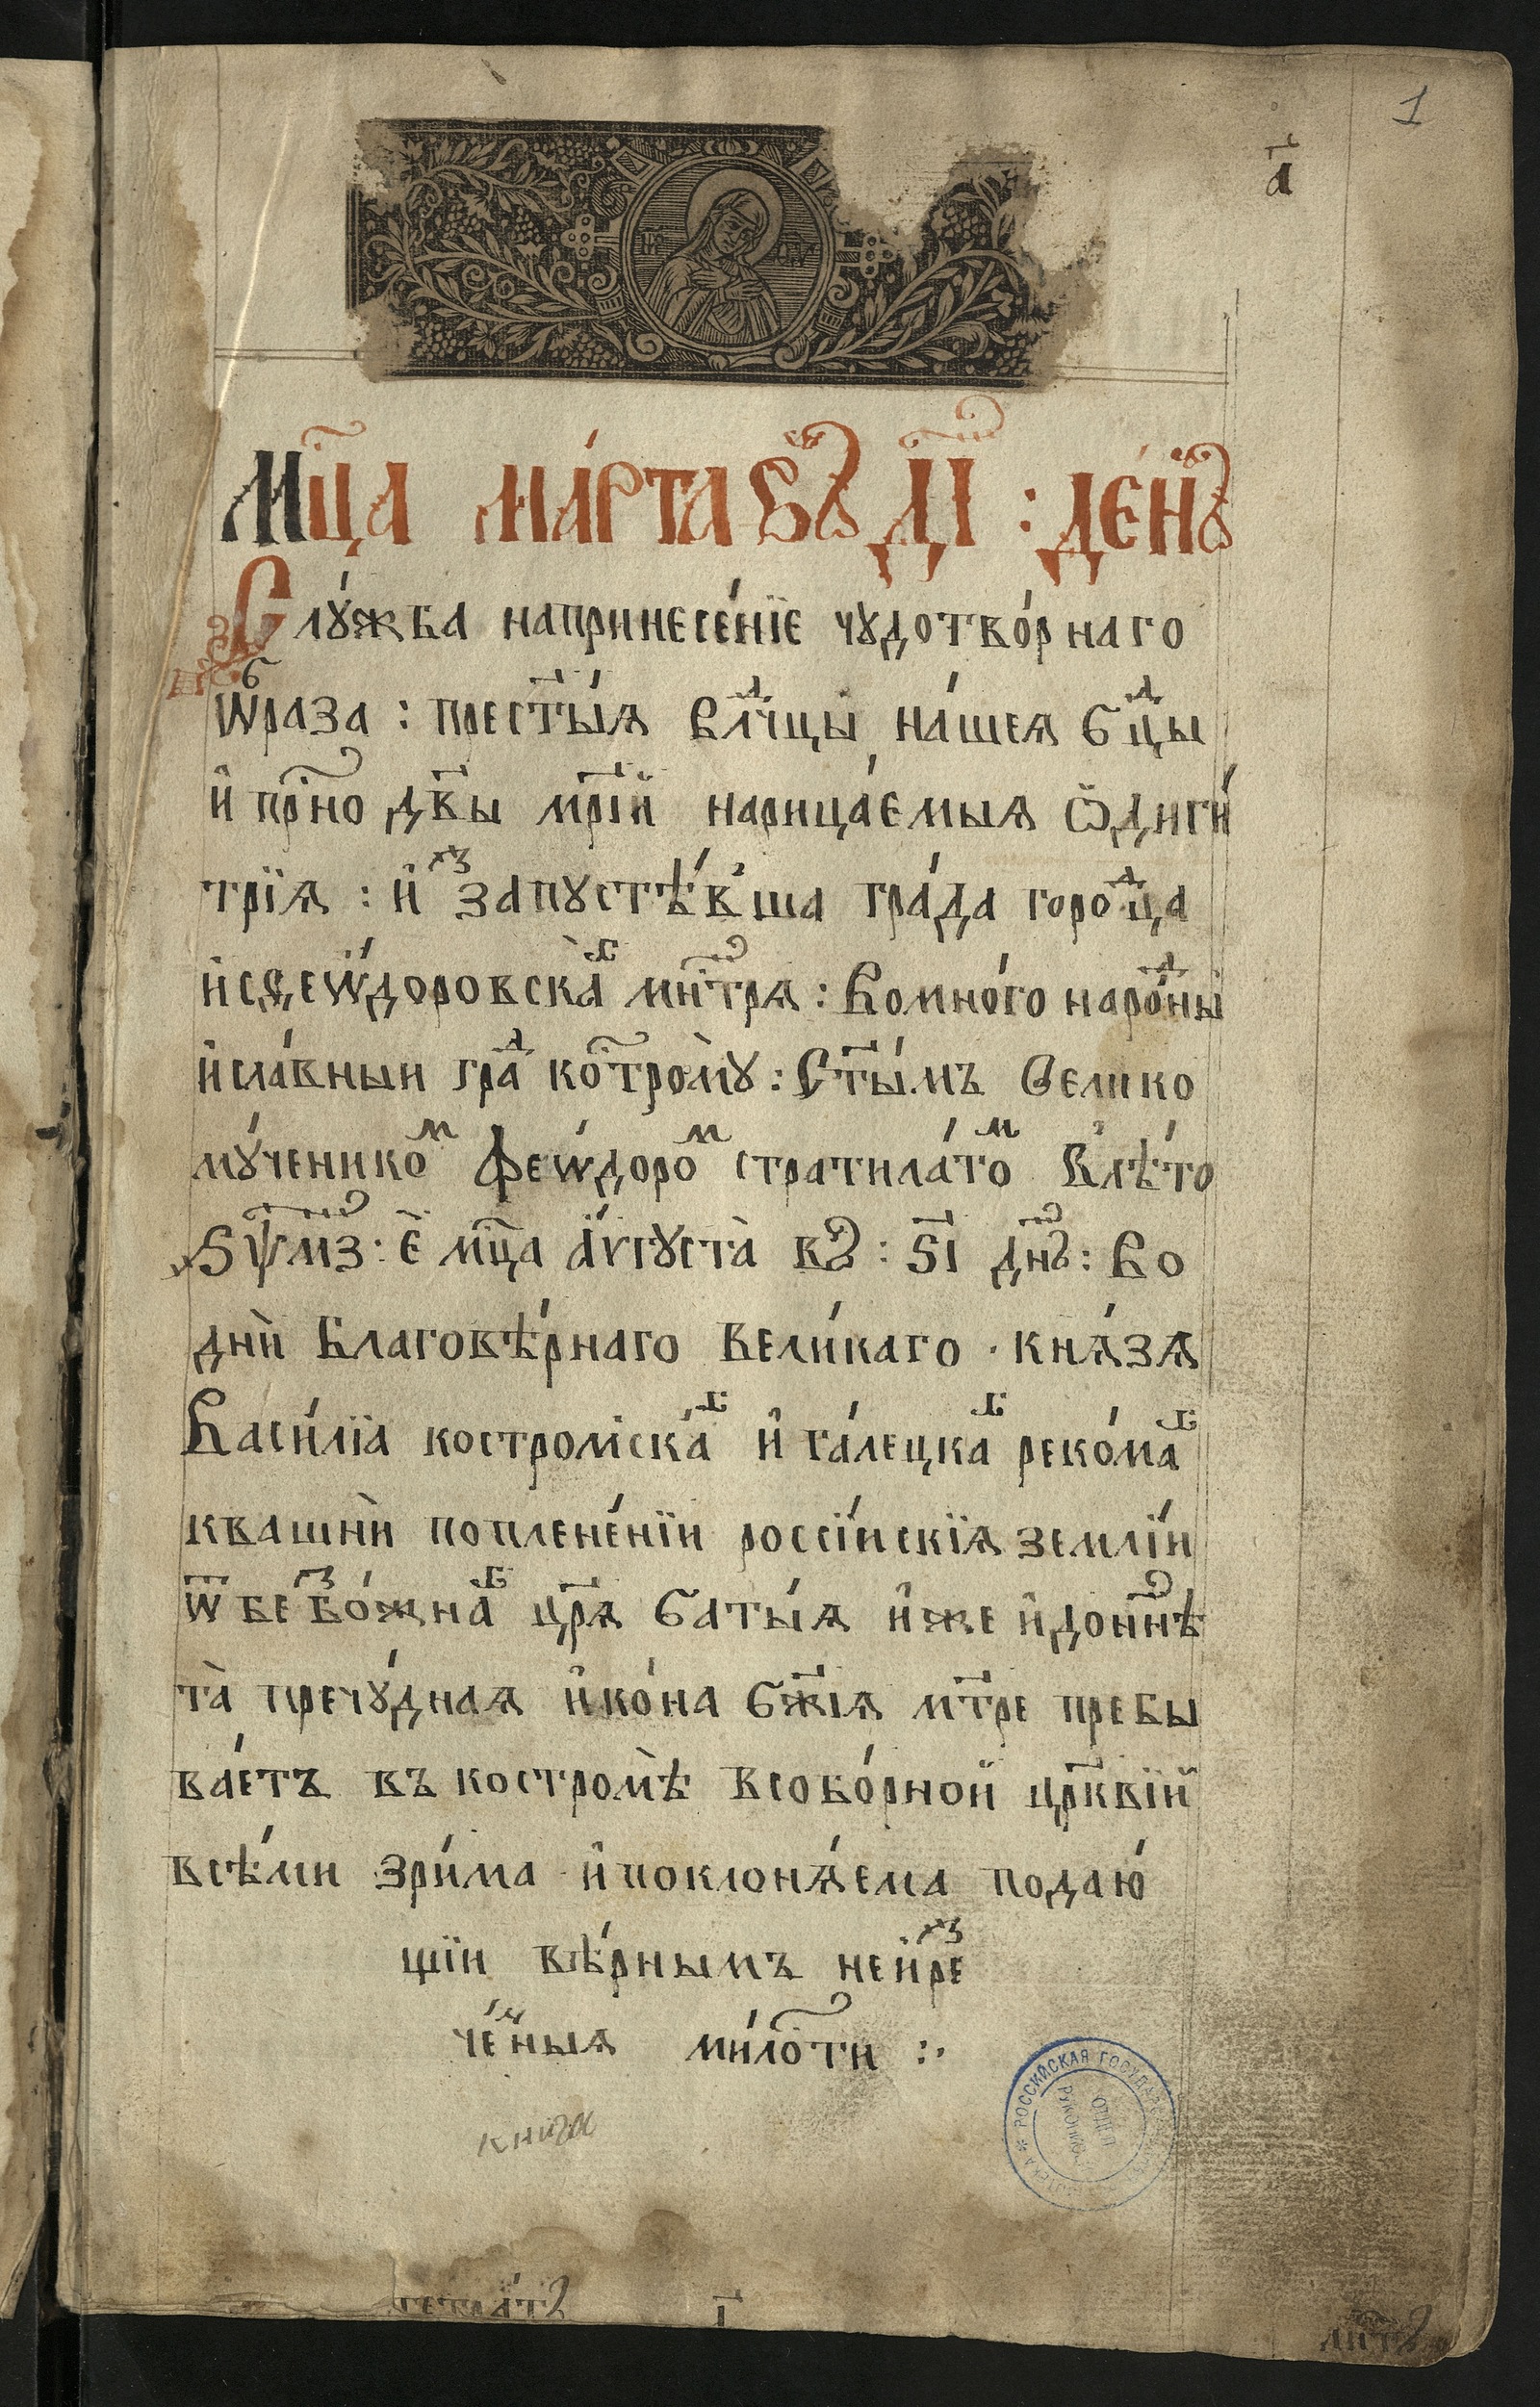 1
а҃
Мц҃а ма́рта въ д҃і : де́нь
Слꙋ́жба напринесе́нїе чꙋдотво́рнаго
ѡ҆ⷠраза : прест҃ы́ѧ влⷣчцы на́шеѧ бⷣцы
и҆ прⷭ҇но дв҃ы мр҃і́и нарица́емыѧ ѻ҆диги́
трїѧ : иⷥ҆ запꙋстѣ́вша гра́да гороⷣца
и҆сѳеѡ́доровскаⷢ мⷭ҇нтрѧ : Вомно́го нароⷣны
и҆сла́вныи граⷣ коⷭ҇тромꙋ̀ : Ст҃ы́мъ велико
мꙋ́ченикоⷨ феѡ́дороⷨ стратила́тоⷨ влѣ́то
ѕѱм҃з : є҆ мц҃а а҆́ѵгꙋста̀ въ : ѕ҃і дн҃ь : во
днѝ благовѣ́рнаго вели́каго кнѧ́зѧ
Васи́лїа костромска́ⷢ и҆ га́лецкаⷢ реко́маⷢ
квашнѝ поплене́нїи россі́искїѧ землі́и
ѿ беⷥбо́жнаⷢ цр҃ѧ баты́ѧ и҆́же и҆донн҃ѣ
та̀ пречꙋ́днаѧ и҆ко́на бж҃іѧ мт҃ре пребы
ва́етъ въ костромѣ̀ всобо́рнои цр҃квїи
всѣ́ми зри́ма и҆поклонѧ́ема подаю́
щїи вѣ́рнымъ неи҆ⷥре
че́ⷩныѧ ми́лоⷭ҇ти :·
книга
РОССИЙСКАЯ ГОСУДАР
ОТДЕЛ
РУКОПИСЕЙ
тетра́ть а҃
листъ